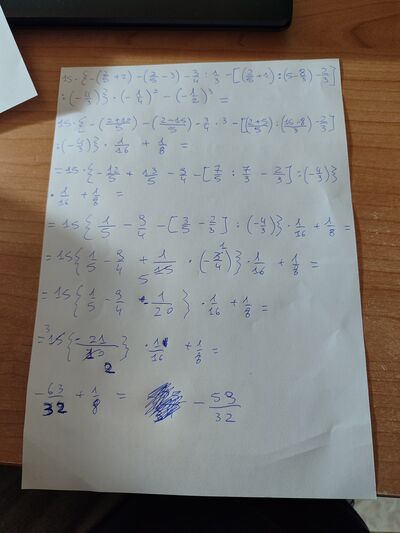 15·{-(2/5+2)-(2/5-3)-3/4:1/3-[(2/5+1):(5-8/3)-2/3]
:(-4/3)}·(-1/4)²-(-1/2)³=
15·{-(2+10/5)-(2-15/5)-3/4·3-[(2+5/5):(15-8/3)-2/3]
:(-4/3)}·1/16+1/8=
=15·{-12/5+13/5-9/4-[7/5:7/3-2/3]:(-4/3)}
·1/16+1/8=
=15{1/5-9/4-[3/5-2/3]:(-4/3)}·1/16+1/8=
=15{1/5-9/4+1/15·(-3/4)}·1/16+1/8=
=15{1/5-9/4-1/20}·1/16+1/8=
=15{-21/10}·1/16+1/8=
-63/32+1/8= -59/32